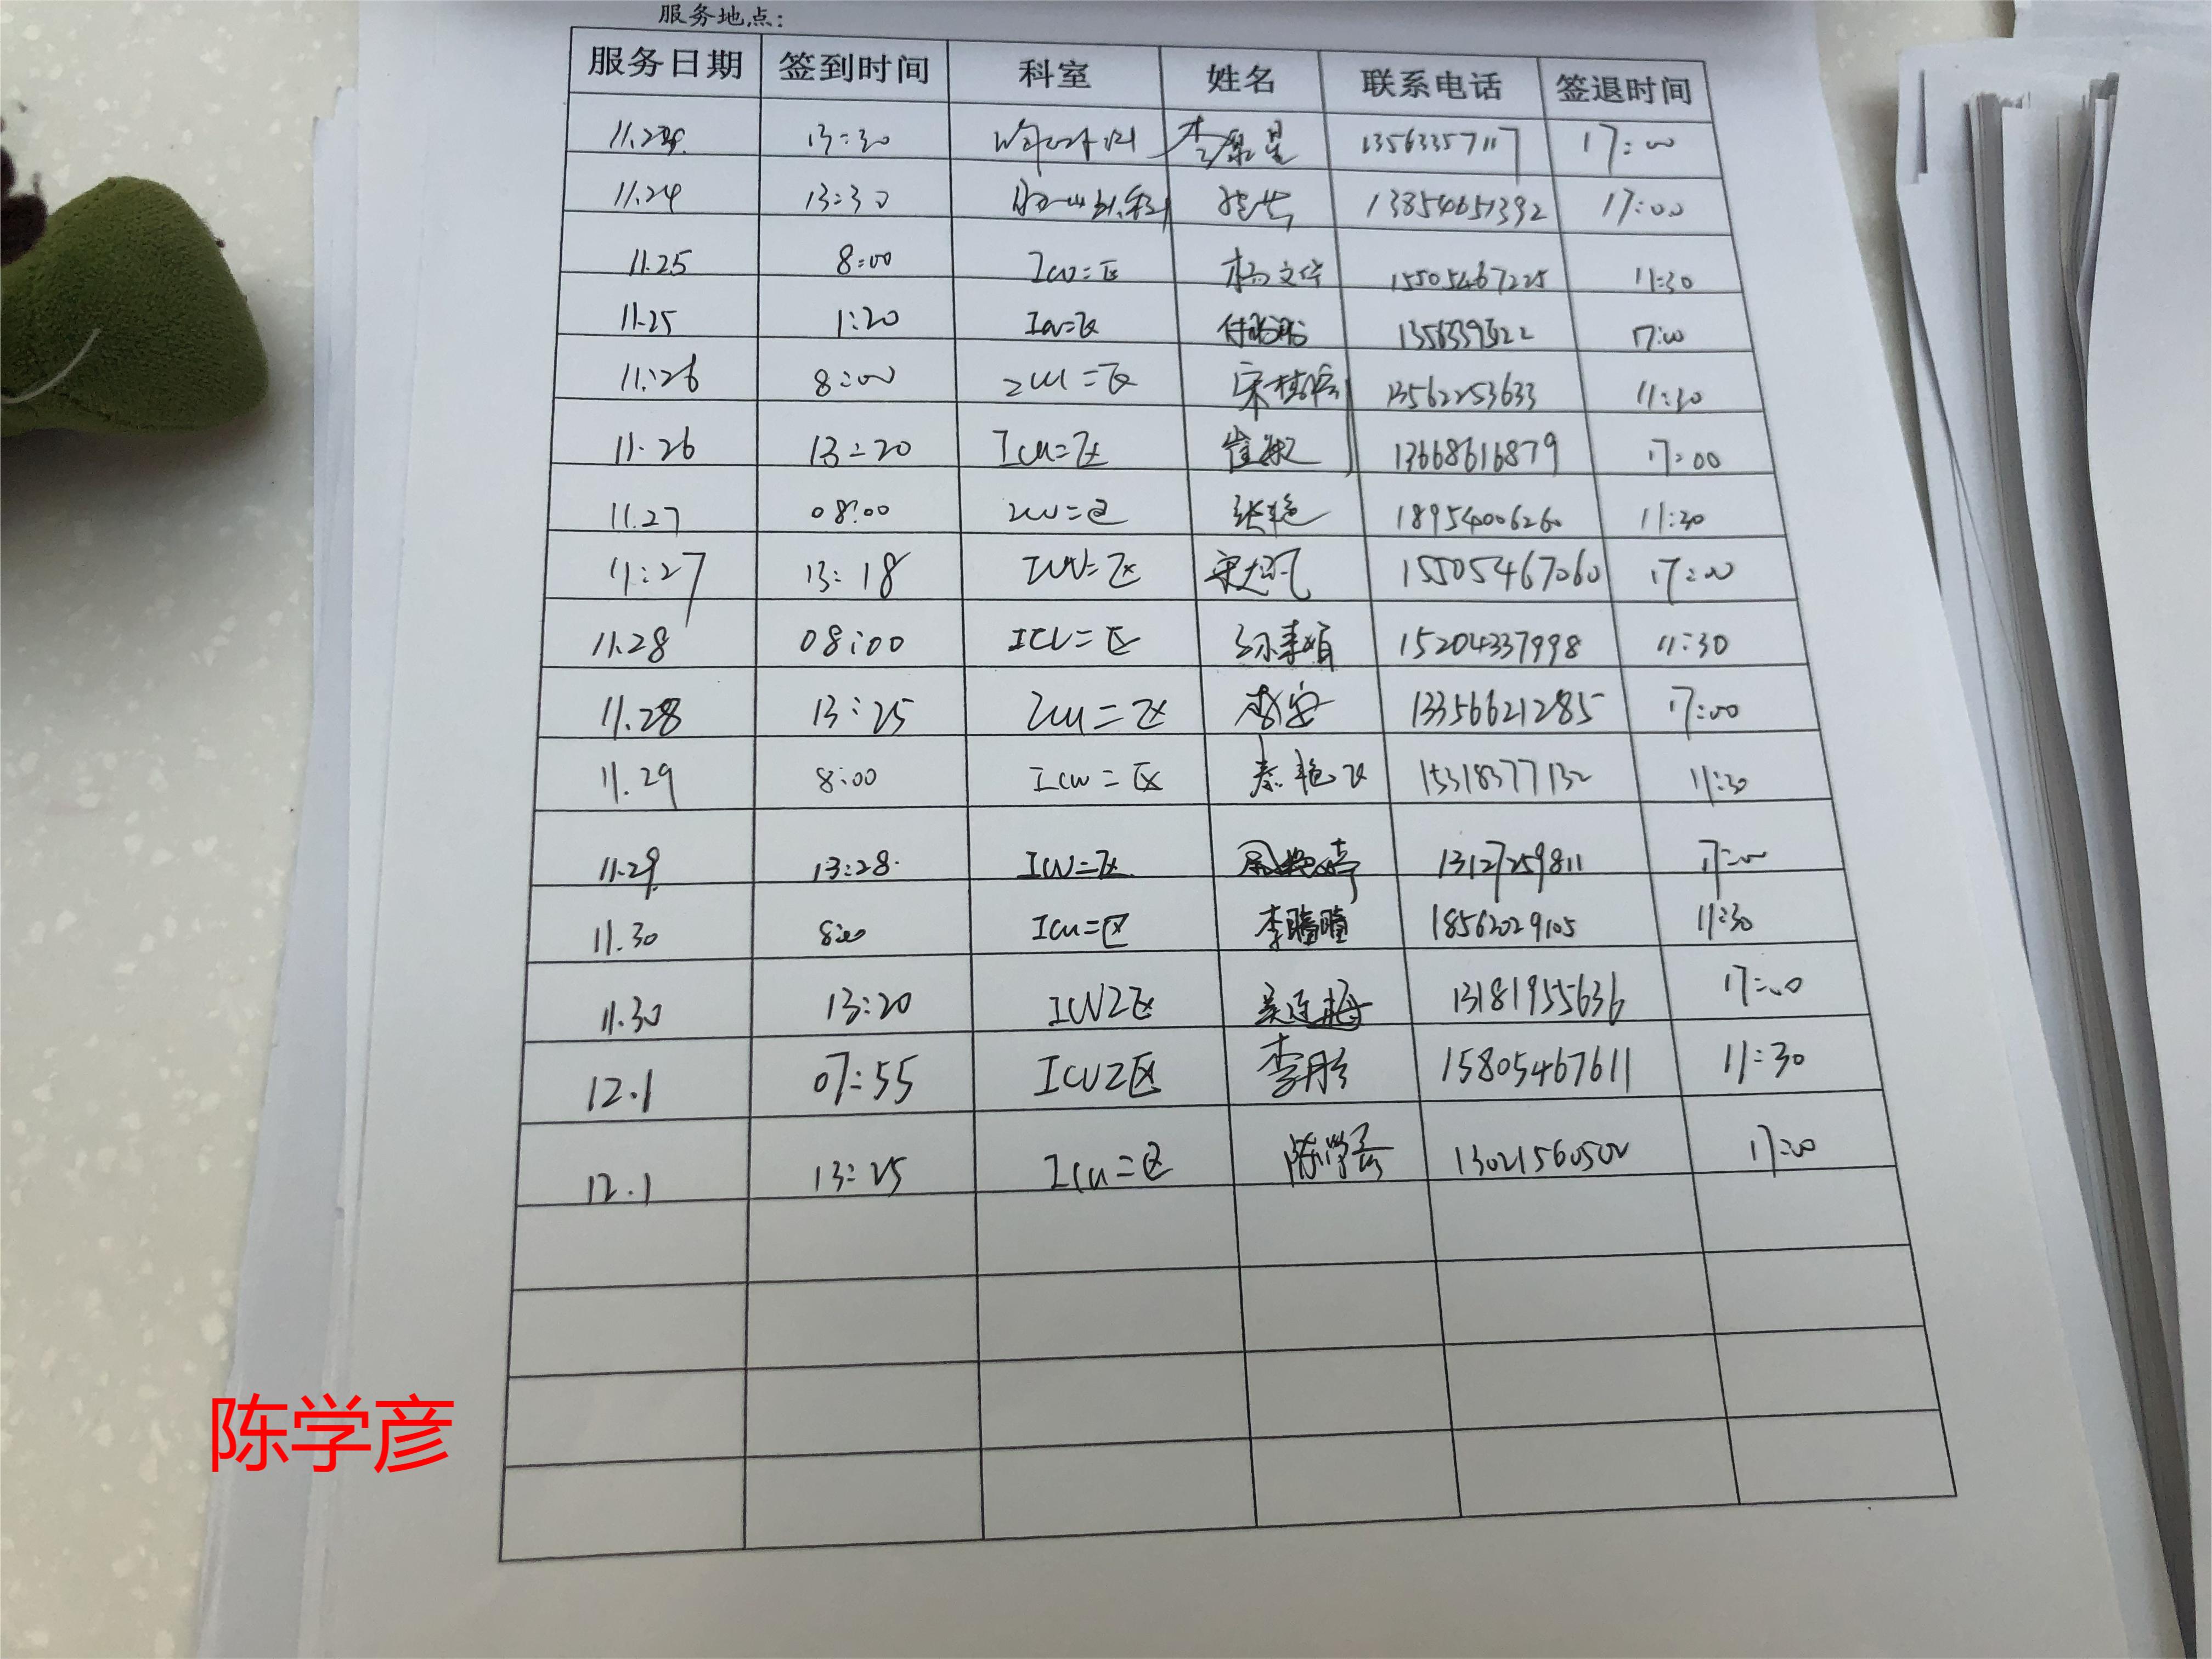 服务地点:
服务日期 签到时间 科室 姓名 联系电话 签退时间
13:30 13563357117 17:00
11.24 13:30 13854651392 17:00
11.25 8:00 ICU二区 杨文宁 15505467225 11:30
11.25 1:20 ICU二区 1356339522 17:00
11.26 8:00 ICU二区 13562253633 11:30
11.26 13:20 ICU二区 崔 13668616879 17:00
11.27 08:00 ICU二区 张艳 18954006260 11:30
11:27 13:18 ICU二区 15505467060 17:00
11.28 08:00 ICU二区 15204337998 11:30
11.28 13:25 ICU二区 李安 13356621285 17:00
11.29 8:00 ICU二区 秦艳 15318377132 11:30
11.29 13:28 ICU二区 周艳婷 13127259811 17:00
11.30 8:00 ICU二区 李瞳瞳 18562029105 11:30
11.30 13:20 ICU2区 吴连梅 13181955636 17:00
12.1 07:55 ICU2区 李彤 15805467611 11:30
12.1 13:25 ICU二区 陈学彦 13021560502 17:00
陈学彦